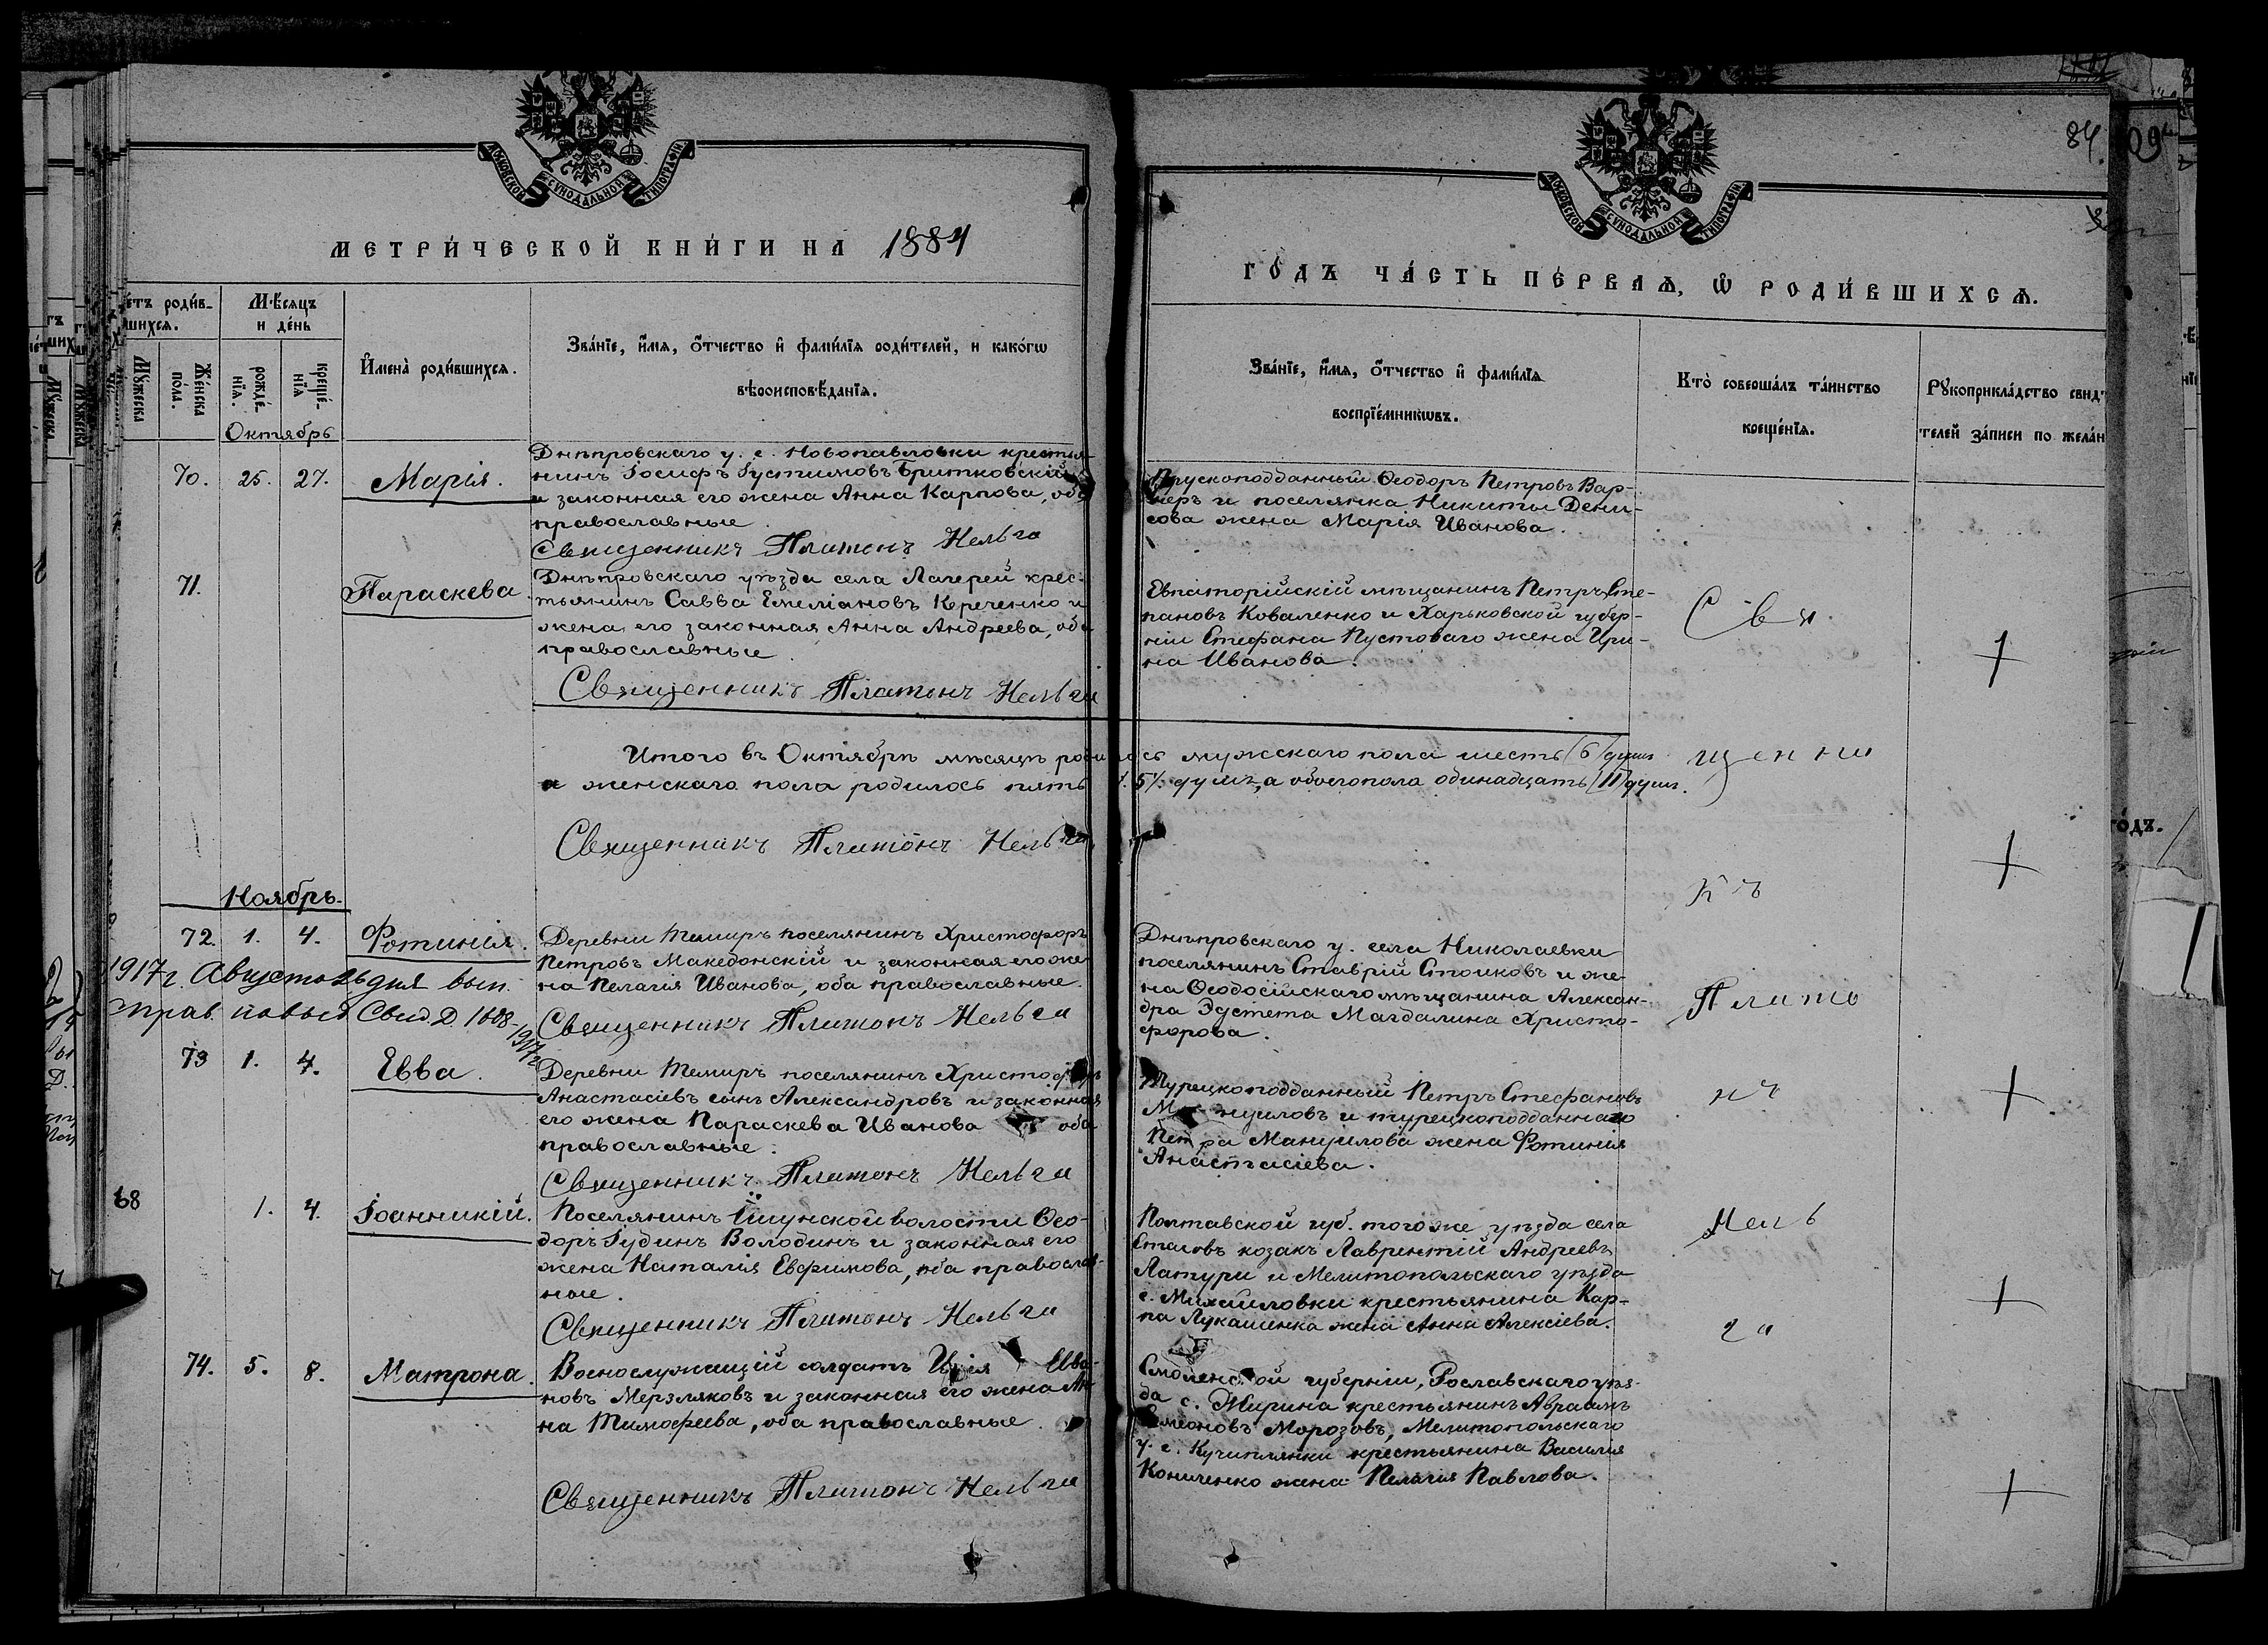 МЕТРИ́ЧЕСКОЙ КНИ́ГИ НА 1884
ГО́ДЪ ЧА́СТЬ ПЕ́РВАѦ, Ѡ РОДИ́ВШИХСѦ.
84
МОСКОВСКОЙ СѴНОДАЛЬНОЙ ТИПОГРАФІИ
МОСКОВСКОЙ СѴНОДАЛЬНОЙ ТИПОГРАФІИ
етъ роди́в-
шихсѧ.
Мѣ́сѧцъ
и де́нь
Мꙋ́жеска
Же́нска
по́ла.
рожде́-
нїѧ.
креще́-
нїѧ
И҆мена̀ роди́вшихсѧ.
Зва́нїе, и҆́мѧ, о҆́тчество и҆ фами́лїѧ роди́телей, и како́гѡ
вѣроисповѣ́данїѧ.
Зва́нїе, и҆́мѧ, о҆́тчество и҆ фами́лїѧ
воспрїе́мникѡвъ.
Кто̀ соверша́лъ та́инство
креще́нїѧ.
Рꙋкоприкла́дство свид
телей за́писи по жела́н
Октябрь
70. 25. 27. Марія.
Днѣпровскаго у. с. Новопавловки крестья-
нинъ Іосифъ Іустимовъ Бритковскій
и законная его жена Анна Карпова, оба
православные.
Священникъ Платонъ Мельга
Прускоподданный Ѳеодоръ Петровъ Вар-
неръ и поселянка Никиты Дени-
сова жена Марія Иванова.
71. Параскева.
Днѣпровскаго уѣзда села Лагерей крес-
тьянинъ Савва Емеліановъ Кереченко и
жена его законная Анна Андреева, оба
православные.
Священникъ Платонъ Мельга
Евпаторійскій мѣщанинъ Петръ Сте-
пановъ Коваленко и Харьковской губер-
ніи Стефана Пустоваго жена Ири-
на Иванова.
Свя
Итого въ Октябрѣ мѣсяцѣ родилось мужскаго пола шесть /6/ душъ
а женскаго пола родилось пять /5/ душъ, а обоего пола одинадцать /11/ душъ.
щенни
Священникъ Платонъ Мельга
къ
Ноябрь.
72. 1. 4. Фотинія.
Деревни Темиръ поселянинъ Христофоръ
Петровъ Македонскій и законная его же-
на Пелагія Иванова, оба православные.
Священникъ Платонъ Мельга
1917 г. Августа 26 дня вып.
Свид. Д. 1608-
1917 г.
Днѣпровскаго у. села Николаевки
поселянинъ Ставрій Стоиковъ и же-
на Ѳеодосійскаго мѣщанина Алексан-
дра Эустета Магдалина Христо-
форова.
Плато
73 1. 4. Евва.
Деревни Темиръ поселянинъ Христофоръ
Анастасіевъ сынъ Александровъ и законная
его жена Параскева Иванова оба
православные.
Священникъ Платонъ Мельга
Турецкоподданный Петръ Стефановъ
Мануиловъ и турецкоподданнаго
Петра Мануилова жена Фотинія
Анастасіева.
нъ
68 1. 4. Іоанникій.
Поселянинъ Ишунской волости Ѳео-
доръ Іудинъ Володинъ и законная его
жена Наталія Евфимова, оба православ-
ные.
Священникъ Платонъ Мельга
Полтавской губ. того же уѣзда села
козакъ Лаврентій Андреевъ
Латури и Мелитопольскаго уѣзда
с. Михайловки крестьянина Кар-
па Лукашенка жена Анна Алексіева.
Мель
га
74. 5. 8. Матрона.
Военослужащій солдатъ Ива-
новъ Мерзляковъ и законная его жена Ан-
на Тимофеева, оба православные.
Священникъ Платонъ Мельга
Смоленской губерніи, Рославскаго уѣз-
да с. Жирина крестьянинъ Авраамъ
Симеоновъ Морозовъ, Мелитопольскаго
у. с. крестьянина Василія
Кониченко жена Пелагія Павлова.